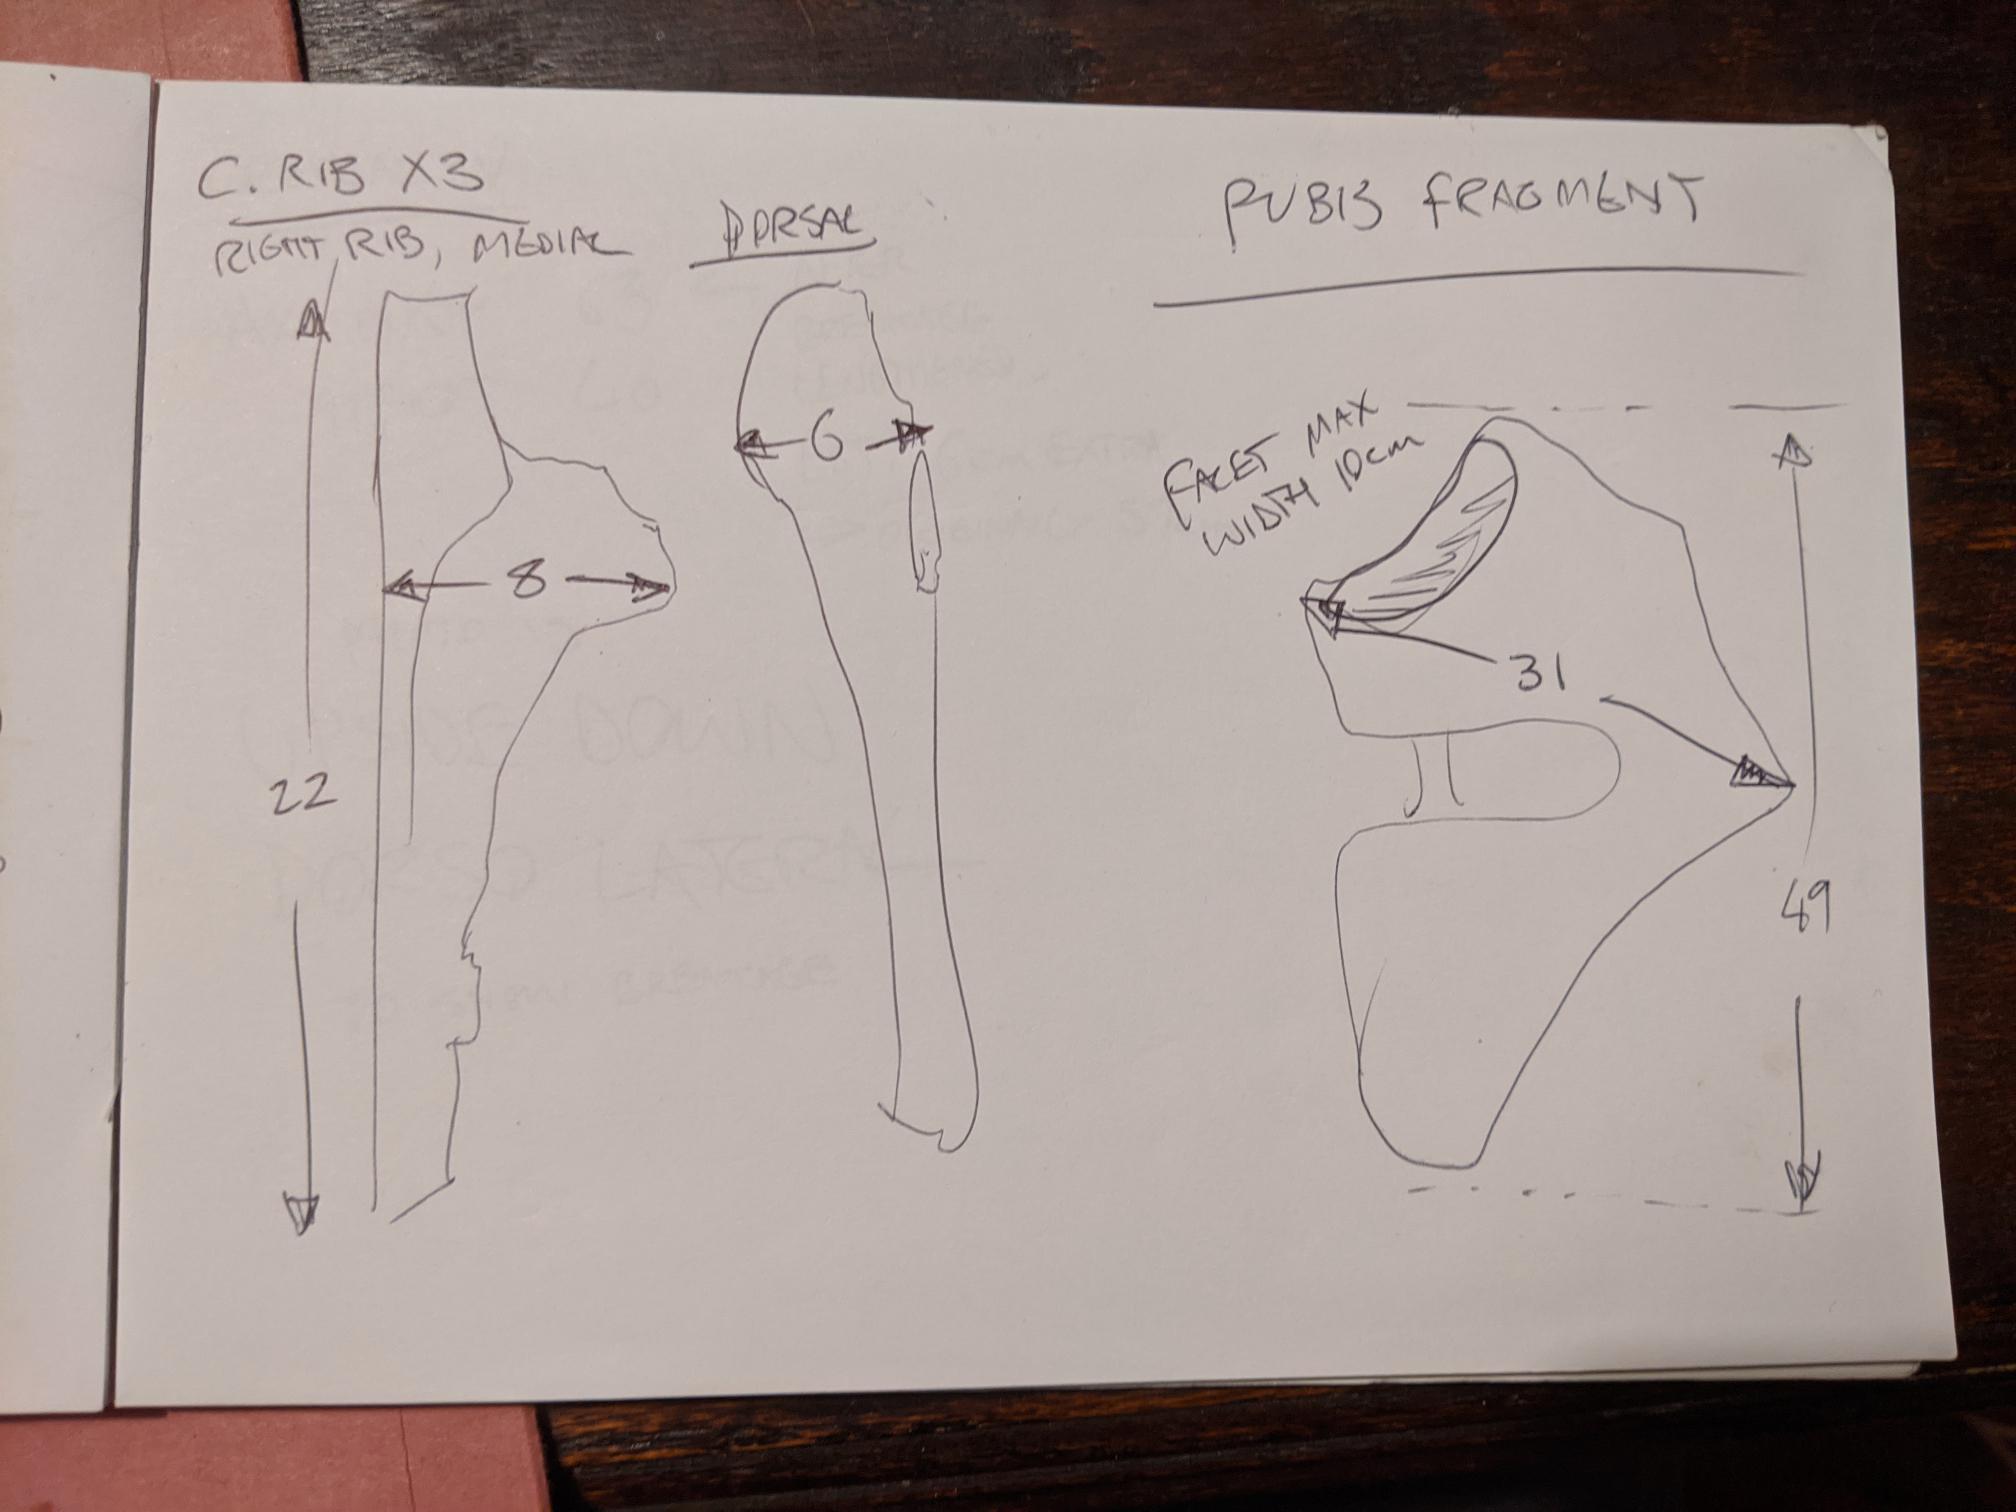 C. RIB X3
RIGHT RIB, MEDIAL
22
8
DORSAL
6
PUBIS FRAGMENT
FACET MAX
WIDTH 10cm
31
49